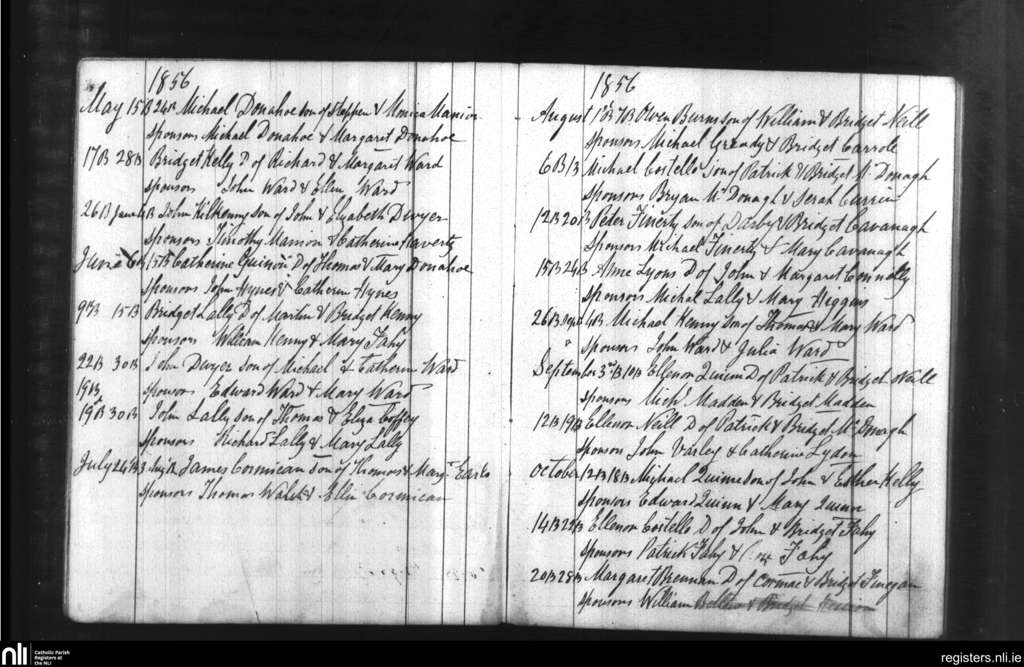 1856
May 15B 24B Michael Donahoe son of Stephen & Monica Manion
Sponsors Michael Donahoe & Margaret Donahoe
17B 28B Bridget Kelly D of Richard & Margaret Ward
Sponsors John Ward & Ellen Ward
26B June B John Kilkenny son of John & Elyabeth Dwyer
Sponsors Timothy Manion & Catherine Haverty
June 6B 15B Catherine D of Thomas & Mary Donahoe
Sponsors John Hynes & Catherin Hynes
9B 15B Bridget Lally D of Martin & Bridget Kenny
Sponsors William Kenny & Mary Fahy
22B 30B John Dwyer son of Michael & Catherin Ward
19B Sponsors Edward Ward & Mary Ward
19B 30B John Lally son of Thomas & Eliza Coffey
Sponsors Richard Lally & Mary Lally
July 24B James Cormican son of Thomas & Mary
Sponsors Thomas Walsh & Ellin Cormican
1856
August 1B 7B Owen Burns son of William & Bridget Neill
Sponsors Michael Gready & Bridget Carrole
6B 13 Michael Costello son of Patrick & Bridget McDonagh
Sponsors Bryan McDonagh & Serah Currin
12B 20B Peter Finerty son of Darby & Bridget Cavanagh
Sponsors Michael Finerty & Mary Cavanagh
15B 24B Anne Lyons D of John & Margaret Connolly
Sponsors Michal Lally & Mary Higgins
26B Sept 4B Michael Kenny son of Thomas & Mary Ward
" Sponsors John Ward & Julia Ward
September 3rd B 10B Ellenor Quinn D of Patrick & Bridget Neill
Sponsors Mich Madden & Bridget Madden
12B 19B Ellenor Neill D of Patrick & Bridget McDonagh
Sponson John Varley & Catherine Lydon
October 12B 18B Michael Quinn son of John & Esther Kelly
Sponsors Edward Quinn & Mary Quinn
14B 22B Ellenor Costello D of John & Bridget Fahy
Sponsors Patrick Fahy & Fahy
20B 28B Margaret Brennan D of Cormac & Bridget Finegan
Sponsors William & Bridget
nli
Catholic Parish
Registers at
the NLI
registers.nli.ie